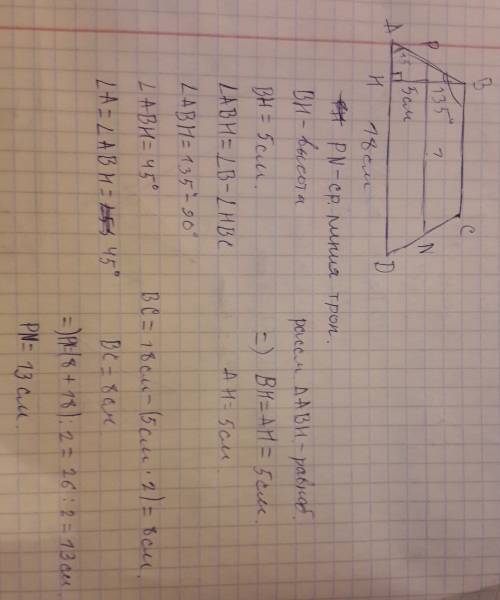 B C
135°
P ? N
45 5см
A H 18см D
PN - ср. линия трап.
BH - высота рассм ΔABH - равноб.
BH = 5см. =) BH = AH = 5см.
∠ABH = ∠B - ∠HBC AH = 5см
∠ABH = 135° - 90°
∠ABH = 45° BC = 18см - (5см · 2) = 8см.
∠A = ∠ABH = 45° BC = 8см
=) (8 + 18) : 2 = 26 : 2 = 13см.
PN = 13см.